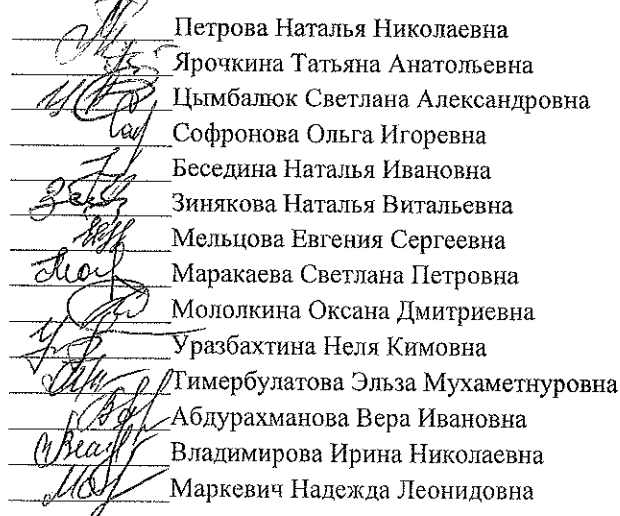 Петрова Наталья Николаевна
Ярочкина Татьяна Анатольевна
Цымбалюк Светлана Александровна
Софронова Ольга Игоревна
Беседина Наталья Ивановна
Зинякова Наталья Витальевна
Мельцова Евгения Сергеевна
Маракаева Светлана Петровна
Мололкина Оксана Дмитриевна
Уразбахтина Неля Кимовна
Тимербулатова Эльза Мухаметнуровна
Абдурахманова Вера Ивановна
Владимирова Ирина Николаевна
Маркевич Надежда Леонидовна